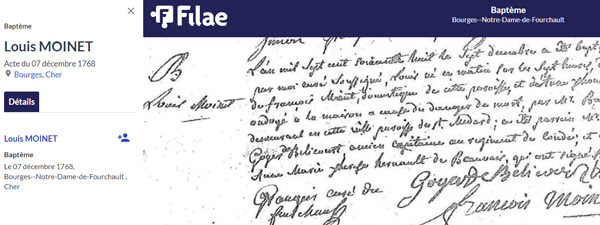 Baptême
Louis MOINET
Acte du 07 décembre 1768
Bourges, Cher
Détails
Louis MOINET
Baptême
Le 07 décembre 1768,
Bourges--Notre-Dame-de-Fourchault ,
Cher
Filae
Baptême
Bourges--Notre-Dame-de-Fourchault
B
Louis Moinet
L'an mil sept cent soixante huit le sept decembre a été
par moi curé soussigné, Louis né ce matin sur les sept heures,
de françois domestique de cette paroisse, et de
ondoyé à la maison a cause du danger de mort, par Mr.
demeurant en cette ville paroisse de St. Medard; a été parrein Mr.
Goyer de Belicourt ancien capitaine au regiment de Condé, et
Anne Marie hernault de Beauvais, qui ont signé
curé de
Goyer de Belicourt
francois Moin